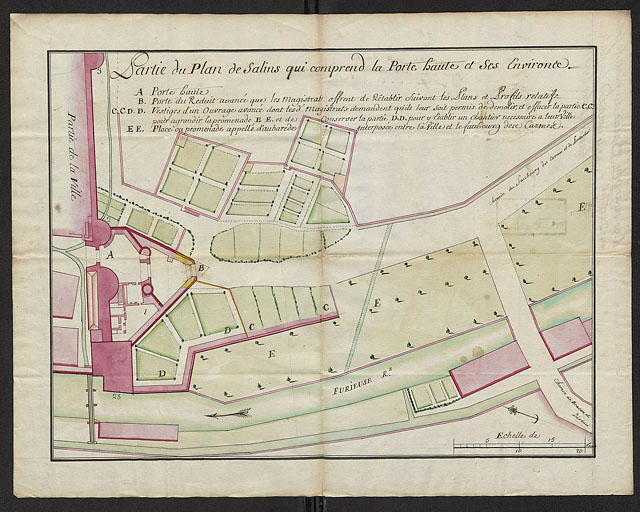 Partie du Plan de Salins qui comprend la Porte haute et Ses Environs
A Porte haute
B. Porte du Reduit avancé que les Magistrats offrent de Rétablir Suivant les Plans et Profils relatifs
C.C.D.D. Vestiges d'un Ouvrage avancé dont lesd. Magistrats demandent qu'ils leur soit permis de demolir et effacer la partie C.C.
pour agrandir la promenade E E. et de Conserver la partie D.D. pour y Etablir un chantier necessaire a leur Ville
E E. Place ou promenade appellé interposée entre la Ville et le fauxbourg des Carmes.
Partie de la Ville
S
A
B
l
D
D
C
C
E
E
E
25
FURIEUSE R.
Echelle de
5
15
10
20